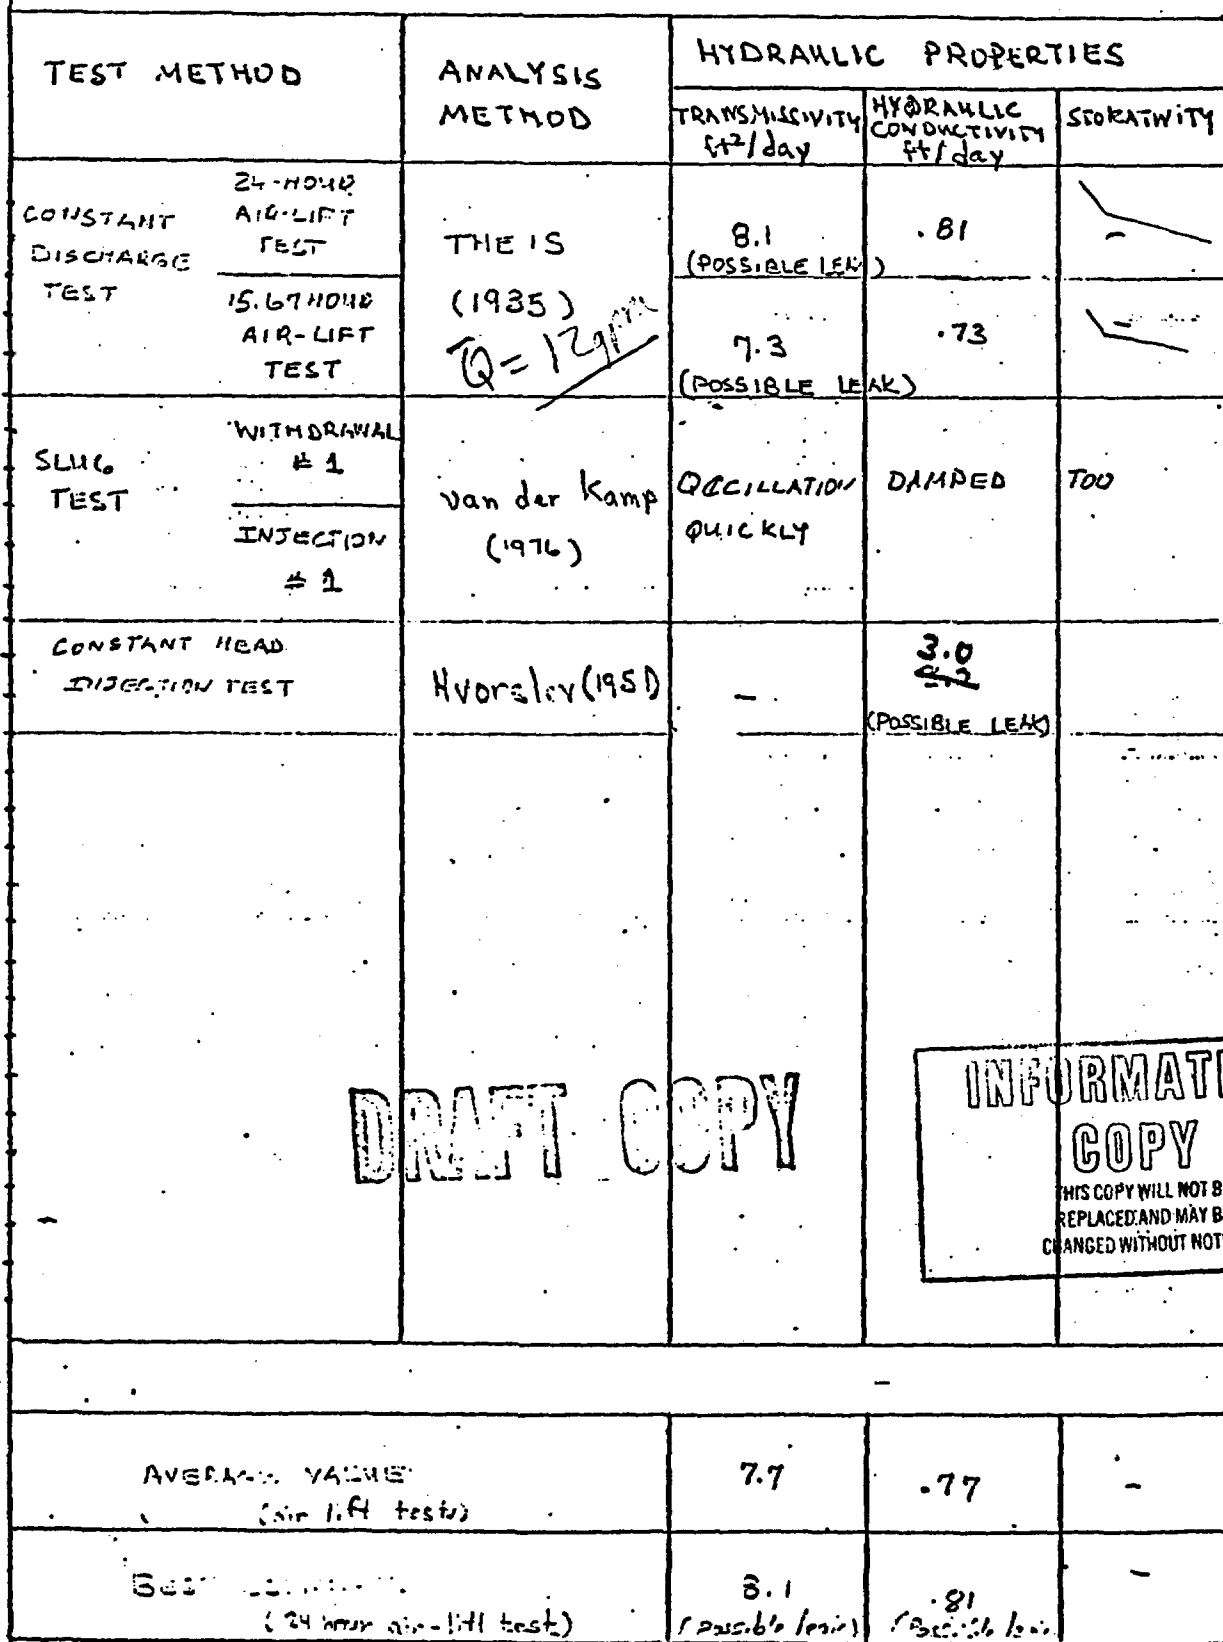 TEST METHOD
ANALYSIS
METHOD
HYDRAULIC PROPERTIES
TRANSMISSIVITY
ft²/day
HYDRAULIC
CONDUCTIVITY
ft/day
STORATIVITY
CONSTANT
DISCHARGE
TEST
24-HOUR
AIR-LIFT
TEST
THEIS
(1935)
Q = 12gpm
8.1
(POSSIBLE LEAK)
.81
-
15.67 HOUR
AIR-LIFT
TEST
7.3
(POSSIBLE LEAK)
.73
-
SLUG
TEST
WITHDRAWAL
# 1
INJECTION
# 1
van der Kamp
(1976)
OCCILLATION DAMPED TOO
QUICKLY
CONSTANT HEAD
INJECTION TEST
Hvorslev (1951)
-
3.0
(POSSIBLE LEAK)
DRAFT COPY
INFORMATI
COPY
THIS COPY WILL NOT B
REPLACED AND MAY B
CHANGED WITHOUT NOT
AVERAGE VALUE
(air lift tests)
7.7
.77
-
BEST
(24 hour air-lift test)
8.1
(possible leak)
.81
(Possible leak
-